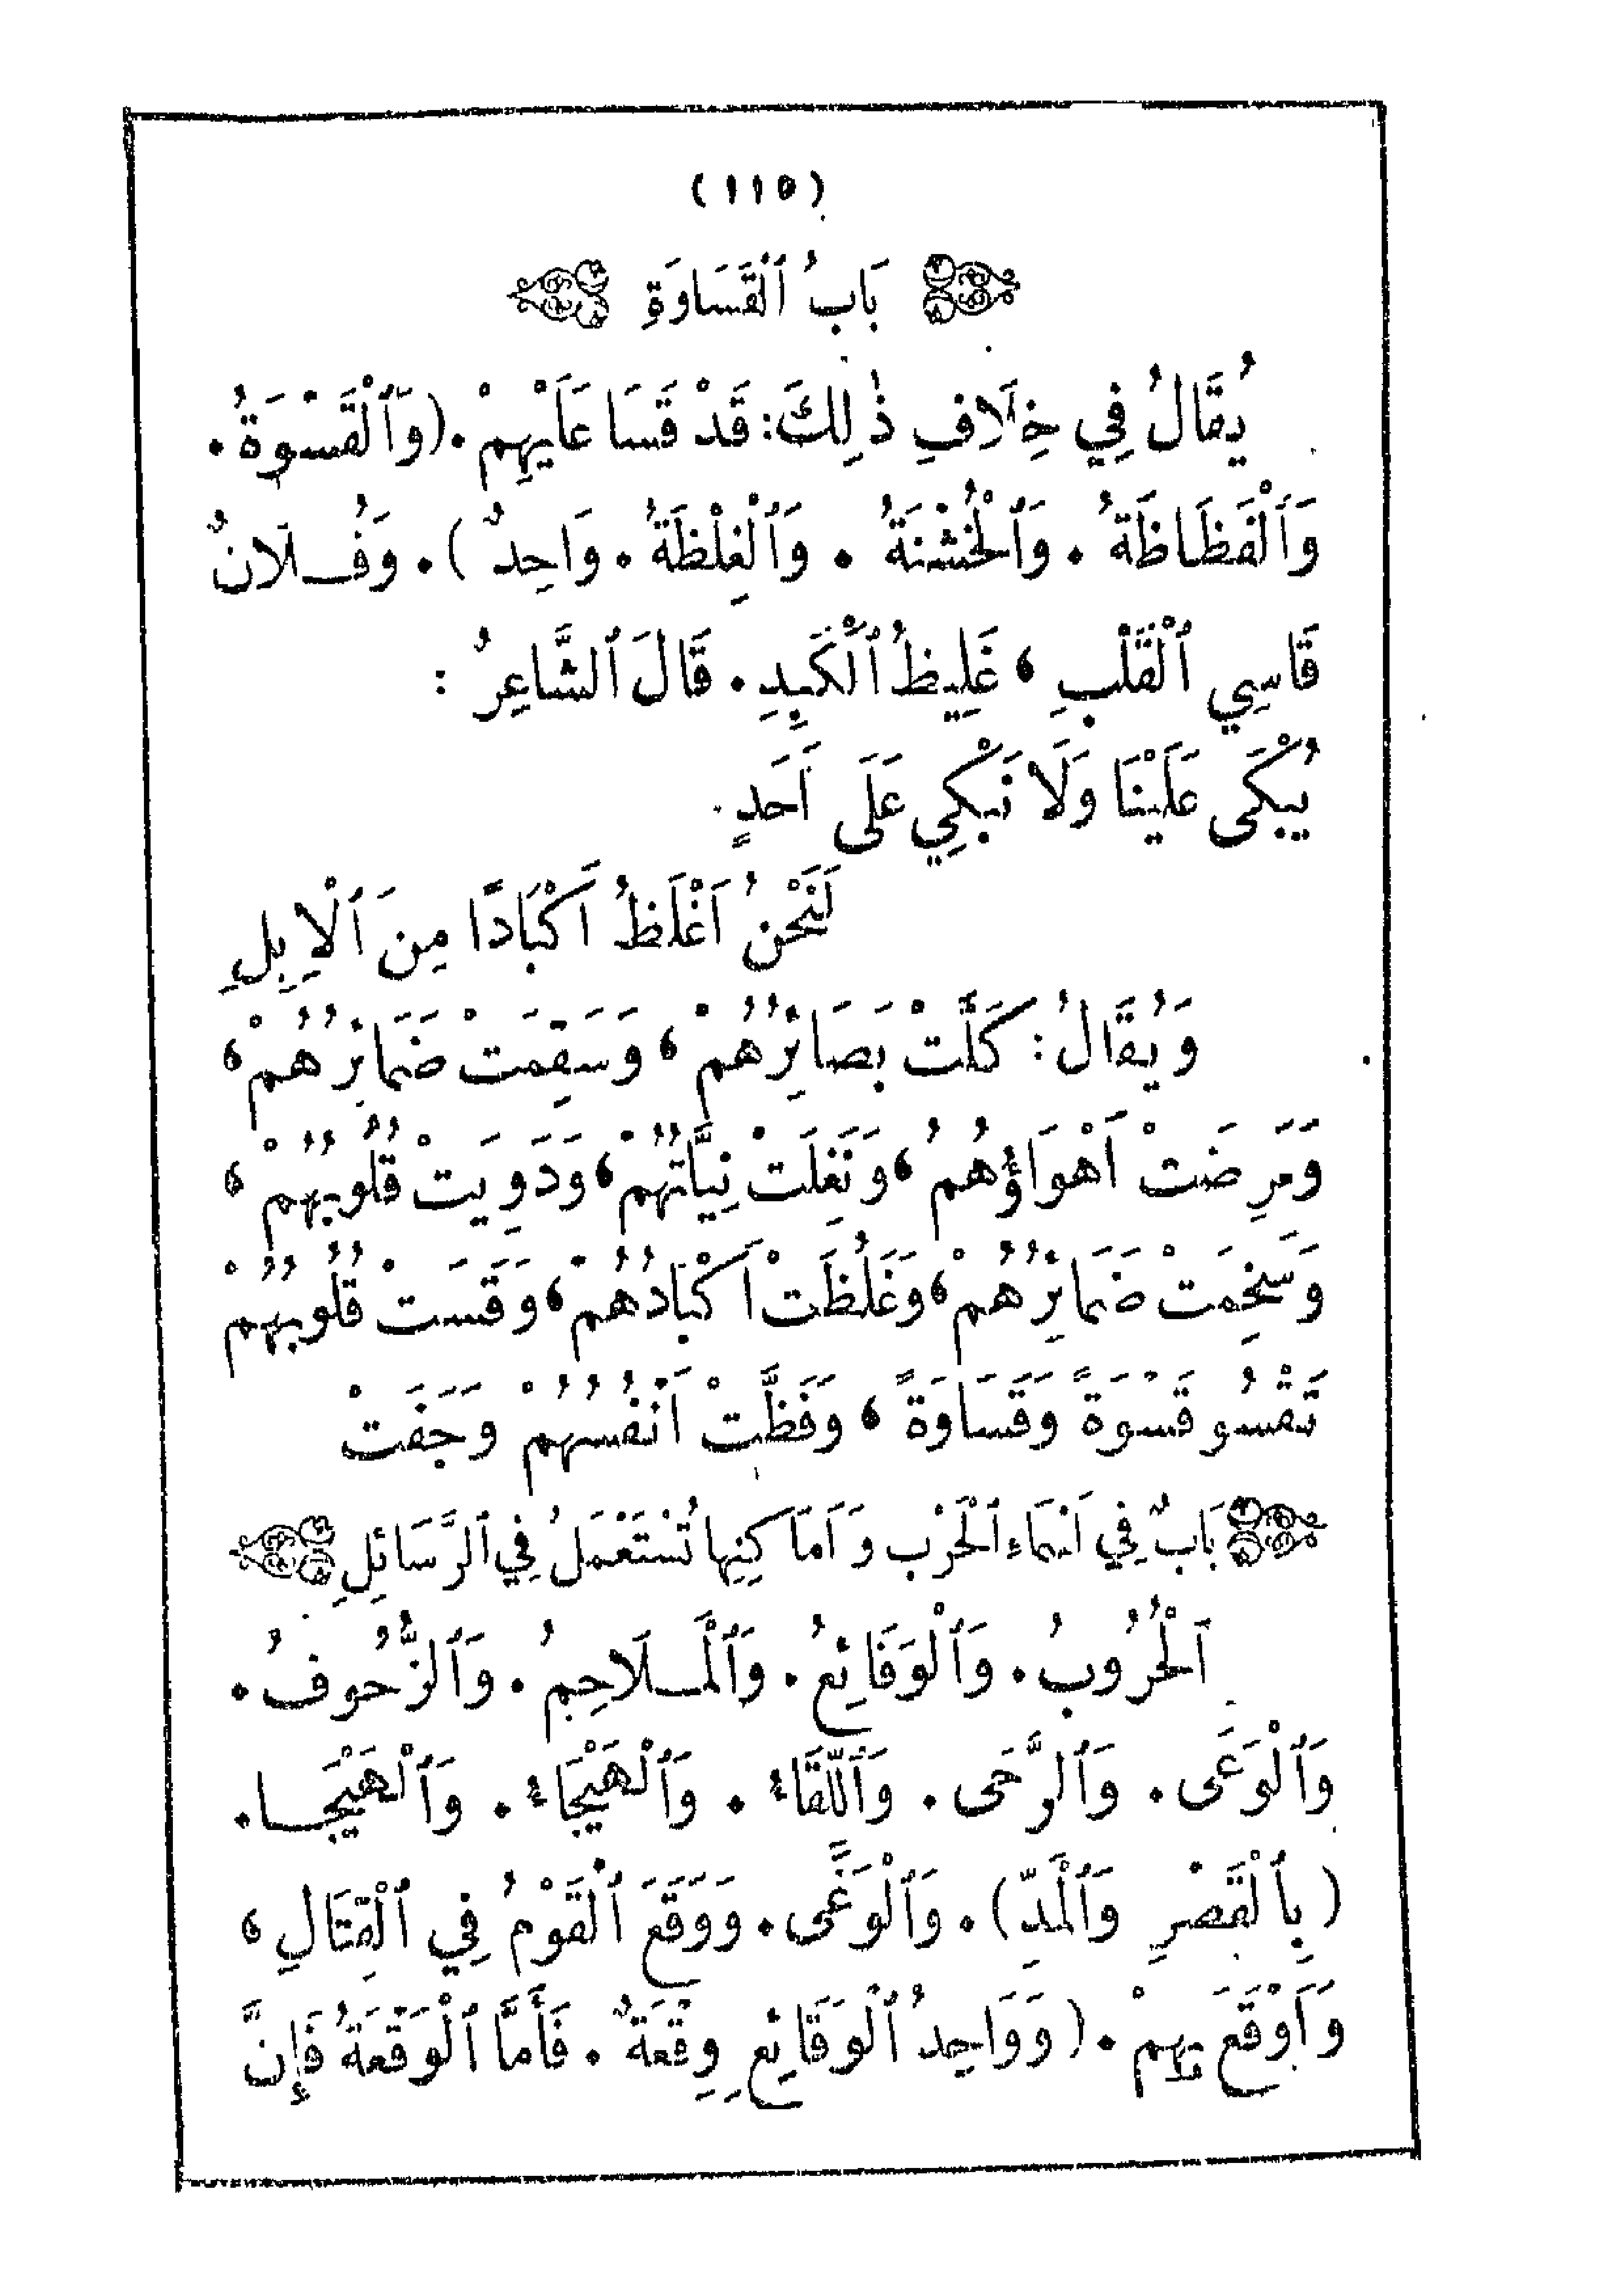 (١١٥)
بَابُ ٱلْقَسَاوَةِ
يُقَالُ فِي خِلَافِ ذٰلِكَ: قَدْ قَسَا عَلَيْهِمْ. (وَٱلْقَسْوَةُ.
وَٱلْفَظَاظَةُ. وَٱلْخُشْنَةُ. وَٱلْغِلْظَةُ. وَاحِدٌ). وَفُلَانٌ
قَاسِي ٱلْقَلْبِ، غَلِيظُ ٱلْكَبِدِ. قَالَ ٱلشَّاعِرُ:
يُبْكَى عَلَيْنَا وَلَا نَبْكِي عَلَى أَحَدٍ
لَنَحْنُ أَغْلَظُ أَكْبَادًا مِنَ ٱلْإِبِلِ
وَيُقَالُ: كَلَّتْ بَصَائِرُهُمْ، وَسَقِمَتْ ضَمَائِرُهُمْ،
وَمَرِضَتْ أَهْوَاؤُهُمْ، وَنَغِلَتْ نِيَّاتُهُمْ، وَدَوِيَتْ قُلُوبُهُمْ،
وَسَخِمَتْ ضَمَائِرُهُمْ، وَغَلُظَتْ أَكْبَادُهُمْ، وَقَسَتْ قُلُوبُهُمْ
تَقْسُو قَسْوَةً وَقَسَاوَةً، وَفَظَّتْ أَنْفُسُهُمْ وَجَفَتْ
بَابٌ فِي أَسْمَاءِ ٱلْحَرْبِ وَأَمَاكِنِهَا تُسْتَعْمَلُ فِي ٱلرَّسَائِلِ
اَلْحُرُوبُ. وَٱلْوَقَائِعُ. وَٱلْمَلَاحِمُ. وَٱلزُّحُوفُ.
وَٱلْوَعَى. وَٱلرَّحَى. وَٱللِّقَاءُ. وَٱلْهَيْجَاءُ. وَٱلْهَيْجَا.
(بِٱلْقَصْرِ وَٱلْمَدِّ). وَٱلْوَغَى. وَوَقَعَ ٱلْقَوْمُ فِي ٱلْقِتَالِ،
وَأَوْقَعَ بِهِمْ. (وَوَاحِدُ ٱلْوَقَائِعِ وِقْعَةٌ. فَأَمَّا ٱلْوَقْعَةُ فَإِنَّ